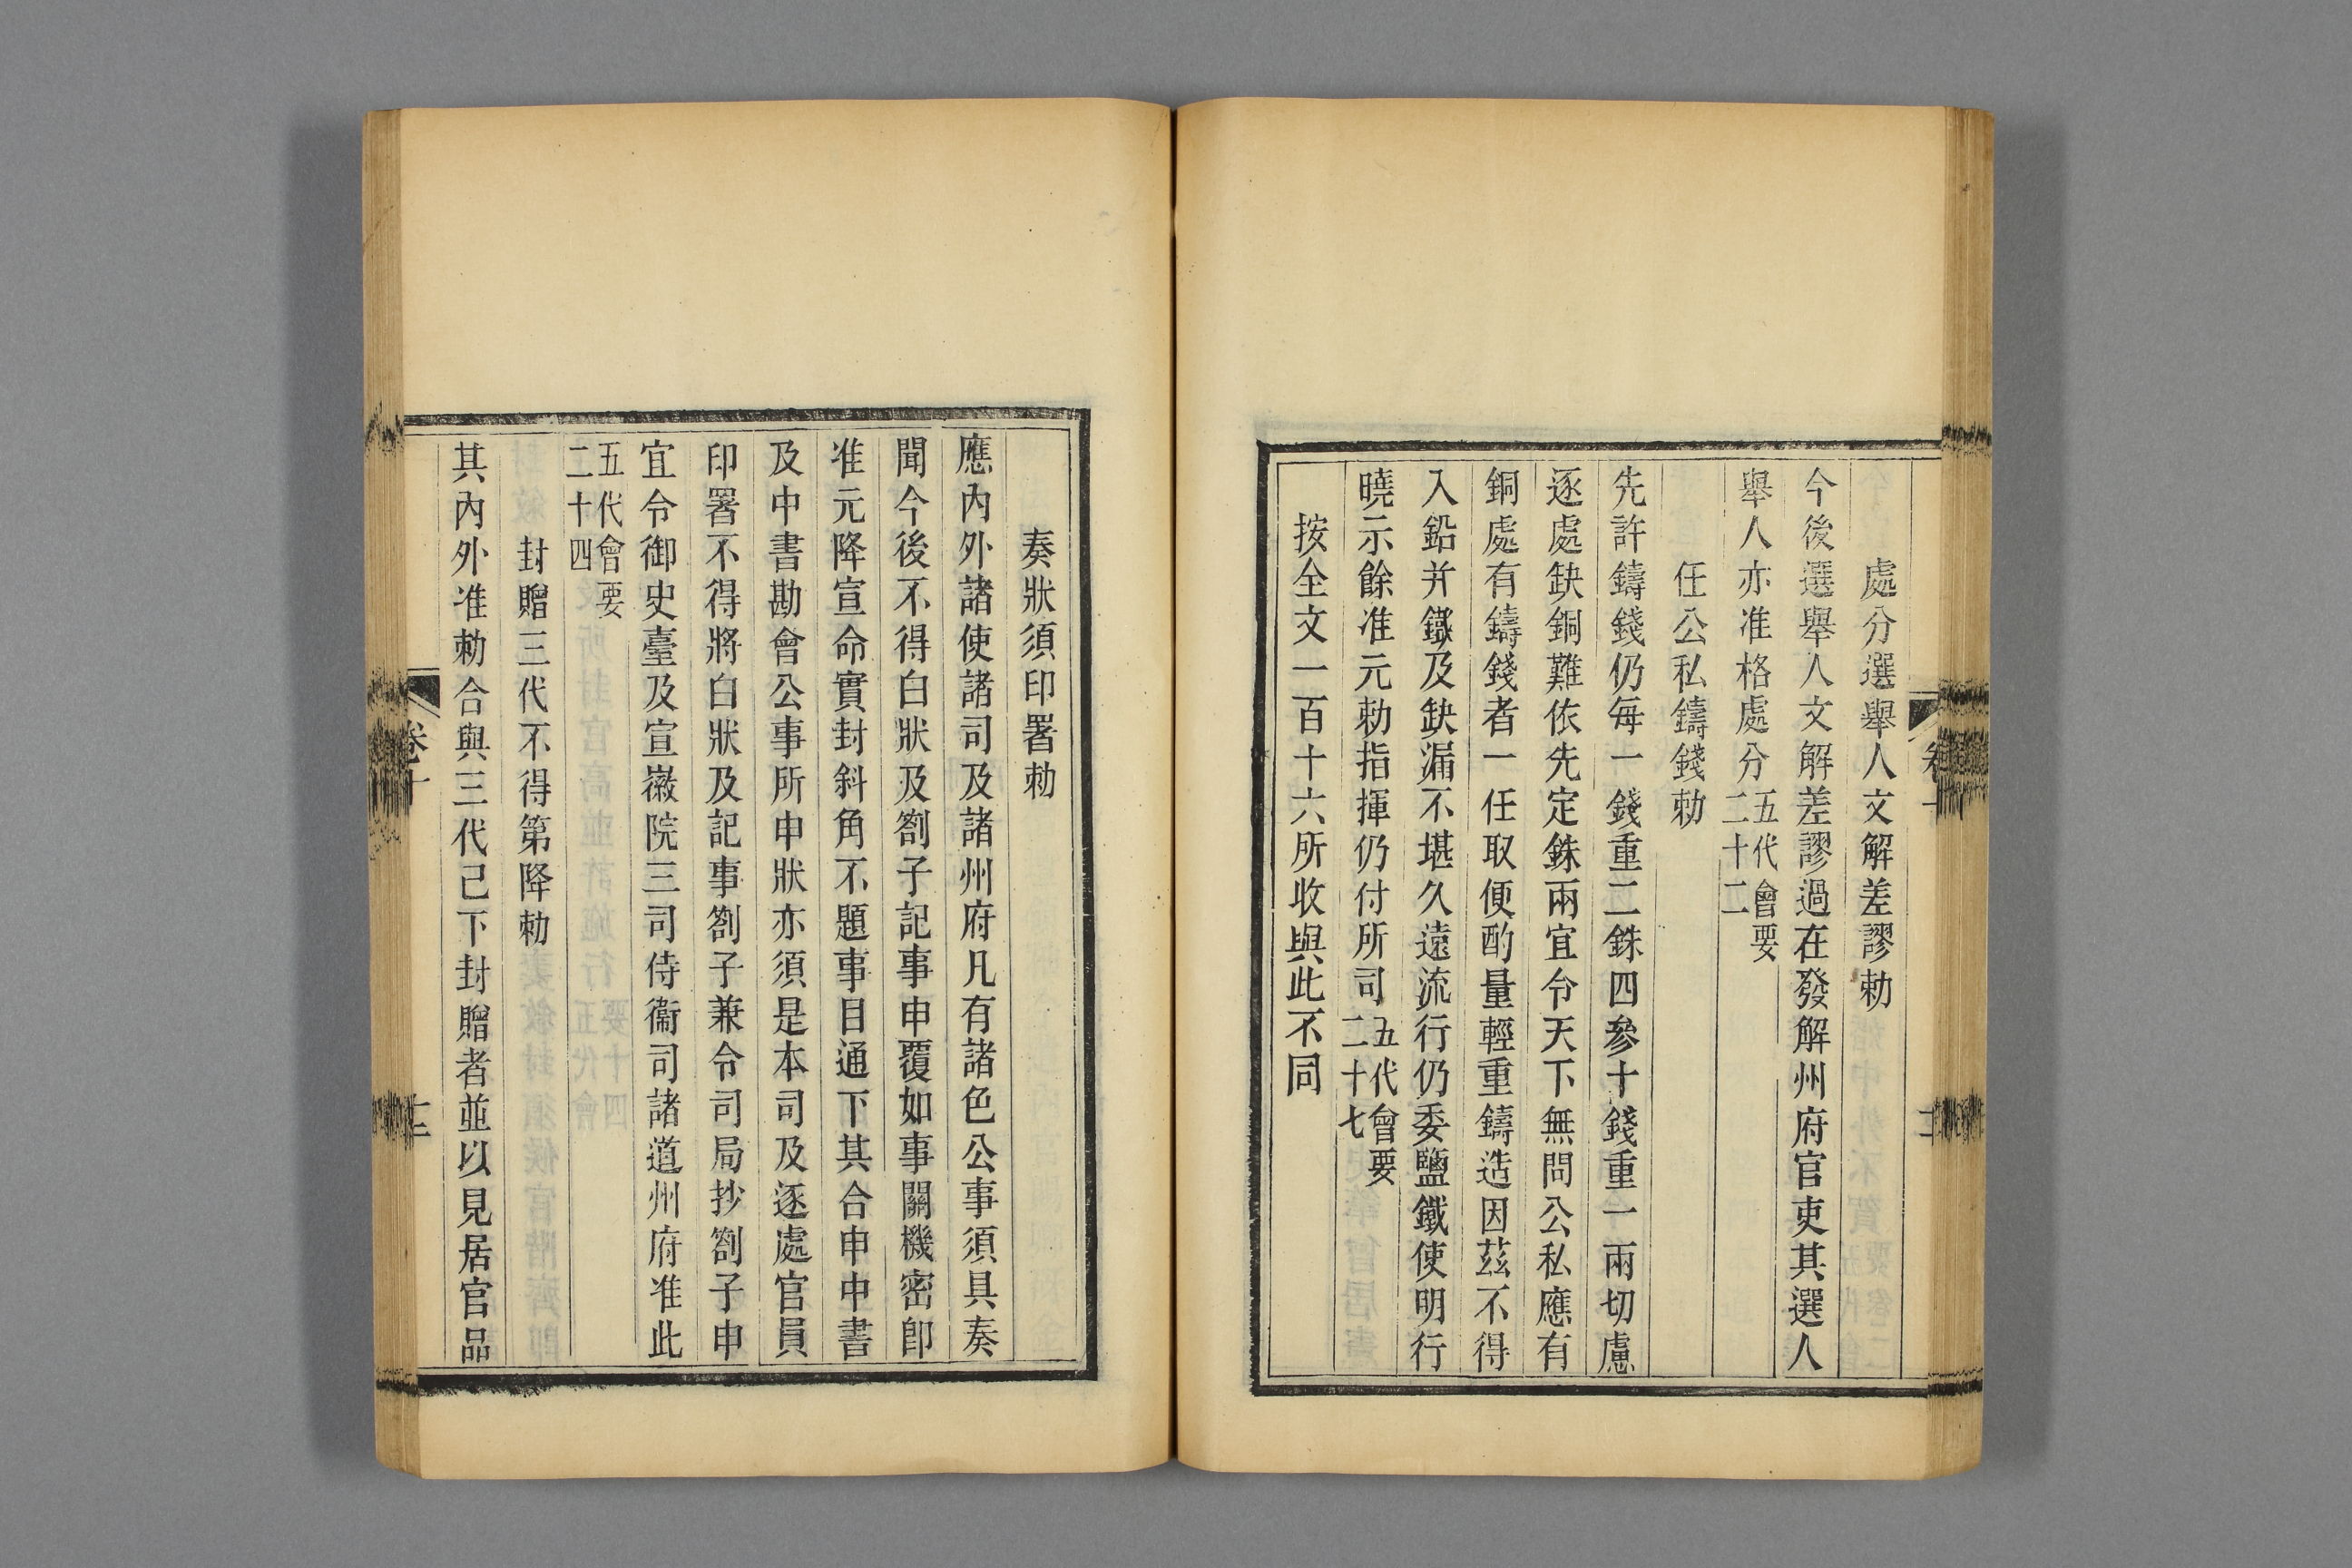 處分選舉人文解差謬勅
今後選舉人文解差謬過在發解州府官吏其選人
舉人亦准格處分五代會要二十二
任公私鑄錢勅
先許鑄錢仍每一錢重二銖四參十錢重一兩切慮
逐處缺銅難依先定銖兩宜令天下無問公私應有
銅處有鑄錢者一任取便酌量輕重鑄造因茲不得
入鉛并鐵及缺漏不堪久遠流行仍委鹽鐵使明行
曉示餘准元勅指揮仍付所司五代會要二十七
按全文一百十六所收與此不同
奏狀須印署勅
應內外諸使諸司及諸州府凡有諸色公事須具奏
聞今後不得白狀及劄子記事申覆如事關機密卽
准元降宣命實封斜角不題事目通下其合申中書
及中書勘會公事所申狀亦須是本司及逐處官員
印署不得將白狀及記事劄子兼令司局抄劄子申
宜令御史臺及宣徽院三司侍衞司諸道州府准此
五代會要二十四
封贈三代不得第降勅
其內外准勅合與三代已下封贈者並以見居官品
卷十